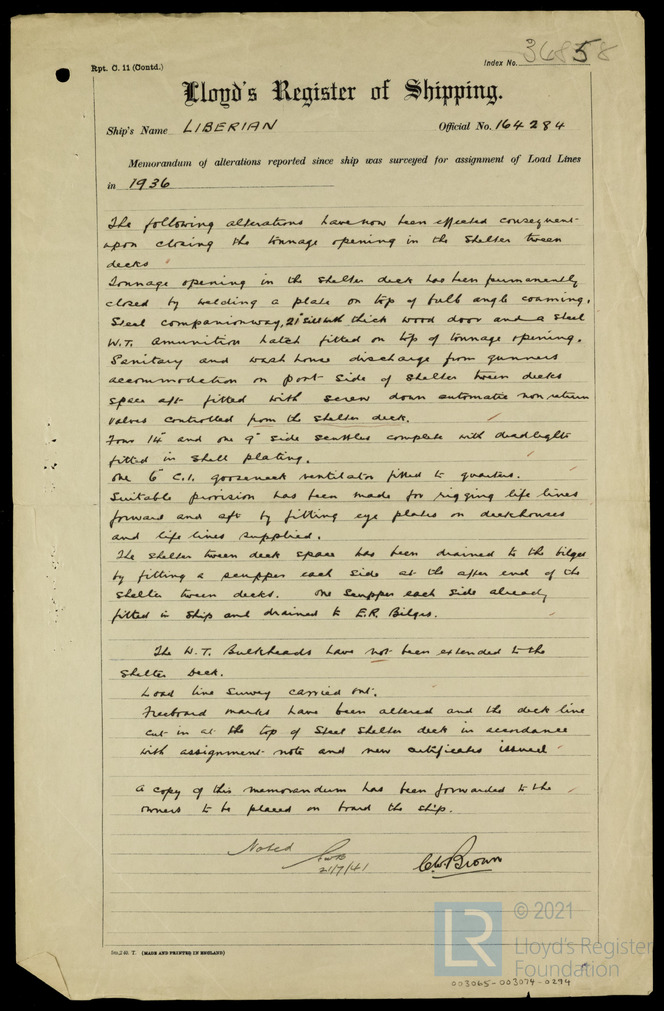 Rpt. C. 11 (Contd.)
Index No. 36858
Lloyd's Register of Shipping.
Ship's Name LIBERIAN Official No. 164284
Memorandum of alterations reported since ship was surveyed for assignment of Load Lines
in 1936
The following alterations have now been effected consequent
upon closing the tonnage opening in the shelter tween
decks
Tonnage opening in the shelter deck has been permanently
closed by welding a plate on top of bulb angle coaming.
Steel companionway, 21" sill with thick wood door and a steel
W.T. amunition hatch fitted on top of tonnage opening.
Sanitary and wash house discharge from gunners
accommodation on port side of shelter tween decks
space aft fitted with screw down automatic non return
valves controlled from the shelter deck.
Four 14" and one 9" side scuttles complete with deadlights
fitted in shell plating.
One 6" C.I. gooseneck ventilator fitted to quarters.
Suitable provision has been made for rigging life lines
forward and aft by fitting eye plates on deckhouses
and life lines supplied.
The shelter tween deck space has been drained to the bilges
by fitting a scupper each side at the after end of the
shelter tween decks. One scupper each side already
fitted in ship and drained to E.R. Bilges.
The W.T. Bulkheads have not been extended to the
Shelter Deck.
Load line Survey carried out.
Freeboard marks have been altered and the deck line
cut in at the top of Steel Shelter deck in accordance
with assignment note and new certificates issued
A copy of this memorandum has been forwarded to the
owners to be placed on board the ship.
Noted
21/7/41
C.W. Brown
(MADE AND PRINTED IN ENGLAND)
LR
© 2021
Lloyd's Register
Foundation
003065-003074-0294